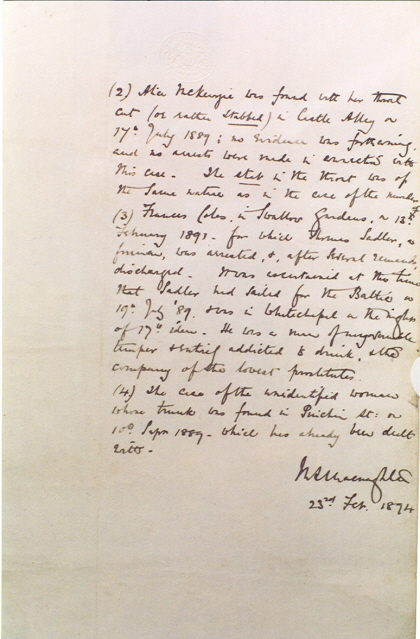 (2) Alice McKenzie was found with her throat
cut (or rather stabbed) in Castle Alley on
17th July 1889; no evidence was forthcoming,
and no arrests were made in connection with
this case. The stab in the throat was of
the same nature as in the case of the murder of
(3) Frances Coles, in Swallow Gardens, on 13th
February 1891 - for which Thomas Sadler, a
fireman, was arrested, &, after several remands,
discharged. It was ascertained at the time
that Sadler had sailed for the Baltic on
19th July '89. & was in Whitechapel on the night
of 17th idem. He was a man of ungovernable
temper & entirely addicted to drink, & the
company of the lowest prostitutes.
(4) The case of the unidentified woman
whose trunk was found in Pinchin St: on
10th Sept 1889 - which has already been dealt
with.
M S Macnaghten
23rd Feb. 1894